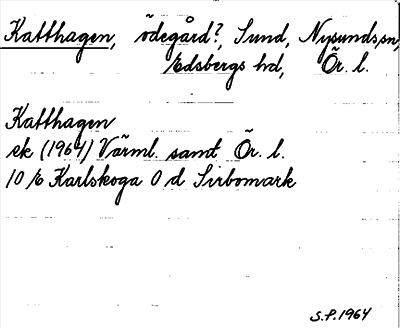 Katthagen, ödegård?, Sund, Nysunds sn,
Edsbergs hd, Ör. l.
Katthagen
ek (1964) Värml. samt Ör. l.
10 E Karlskoga O d Sirbomark
S.P. 1964